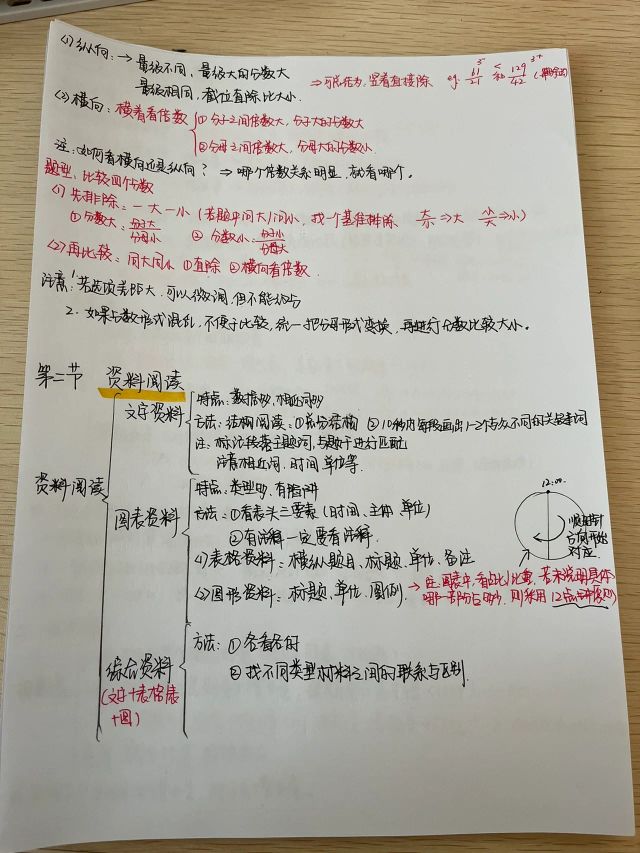 (1) 纵向：→ 量级不同，量级大的分数大
量级相同，截位直除比大小.
⇒ 可化为，竖着直接除 eg. 61/21 3⁻ < 和 129/42 3⁺
(2) 横向：横着看倍数 ① 分子之间倍数大，分子大的分数大
② 分母之间倍数大，分母大的分数小.
注：如何看横向还是纵向？ ⇒ 哪个倍数关系明显，就看哪个。
题型：比较四个分数
(1) 先排除：一大一小（若题中问大/问小，找一个基准排除 大/小 ⇒大 小/大 ⇒小）
① 分数大：分子大/分母小 ② 分数小：分子小/分母大
(2) 再比较：同大同小 ①直除 ②横向看倍数.
注意：1. 若选项差距大，可以微调，但不能
2. 如果分数形式混乱，不便于比较，统一把分母形式变换，再进行分数比较大小。
第二节 资料阅读
资料阅读
文字资料
特点：数据多，相近词多
方法：结构阅读：①总分结构 ②10秒内每段画出1-2个与众不同的关键词
注：标注段落主题词，与题干进行匹配
注意相近词、时间、单位等.
图表资料
特点：类型多，有陷阱
方法：①看表头三要素（时间、主体、单位）
②有注释一定要看注释.
(1) 表格资料：横纵题目、标题、单位、备注
(2) 图形资料：标题、单位、图例.
→ 注：图表中，看占比/比重，若未说明具体
哪一部分占多少，则采用12点
12:00.
顺时针
方向开始
对应.
综合资料
(文字+表格表
+图)
方法：① 各看各的
② 找不同类型材料之间的联系与区别.